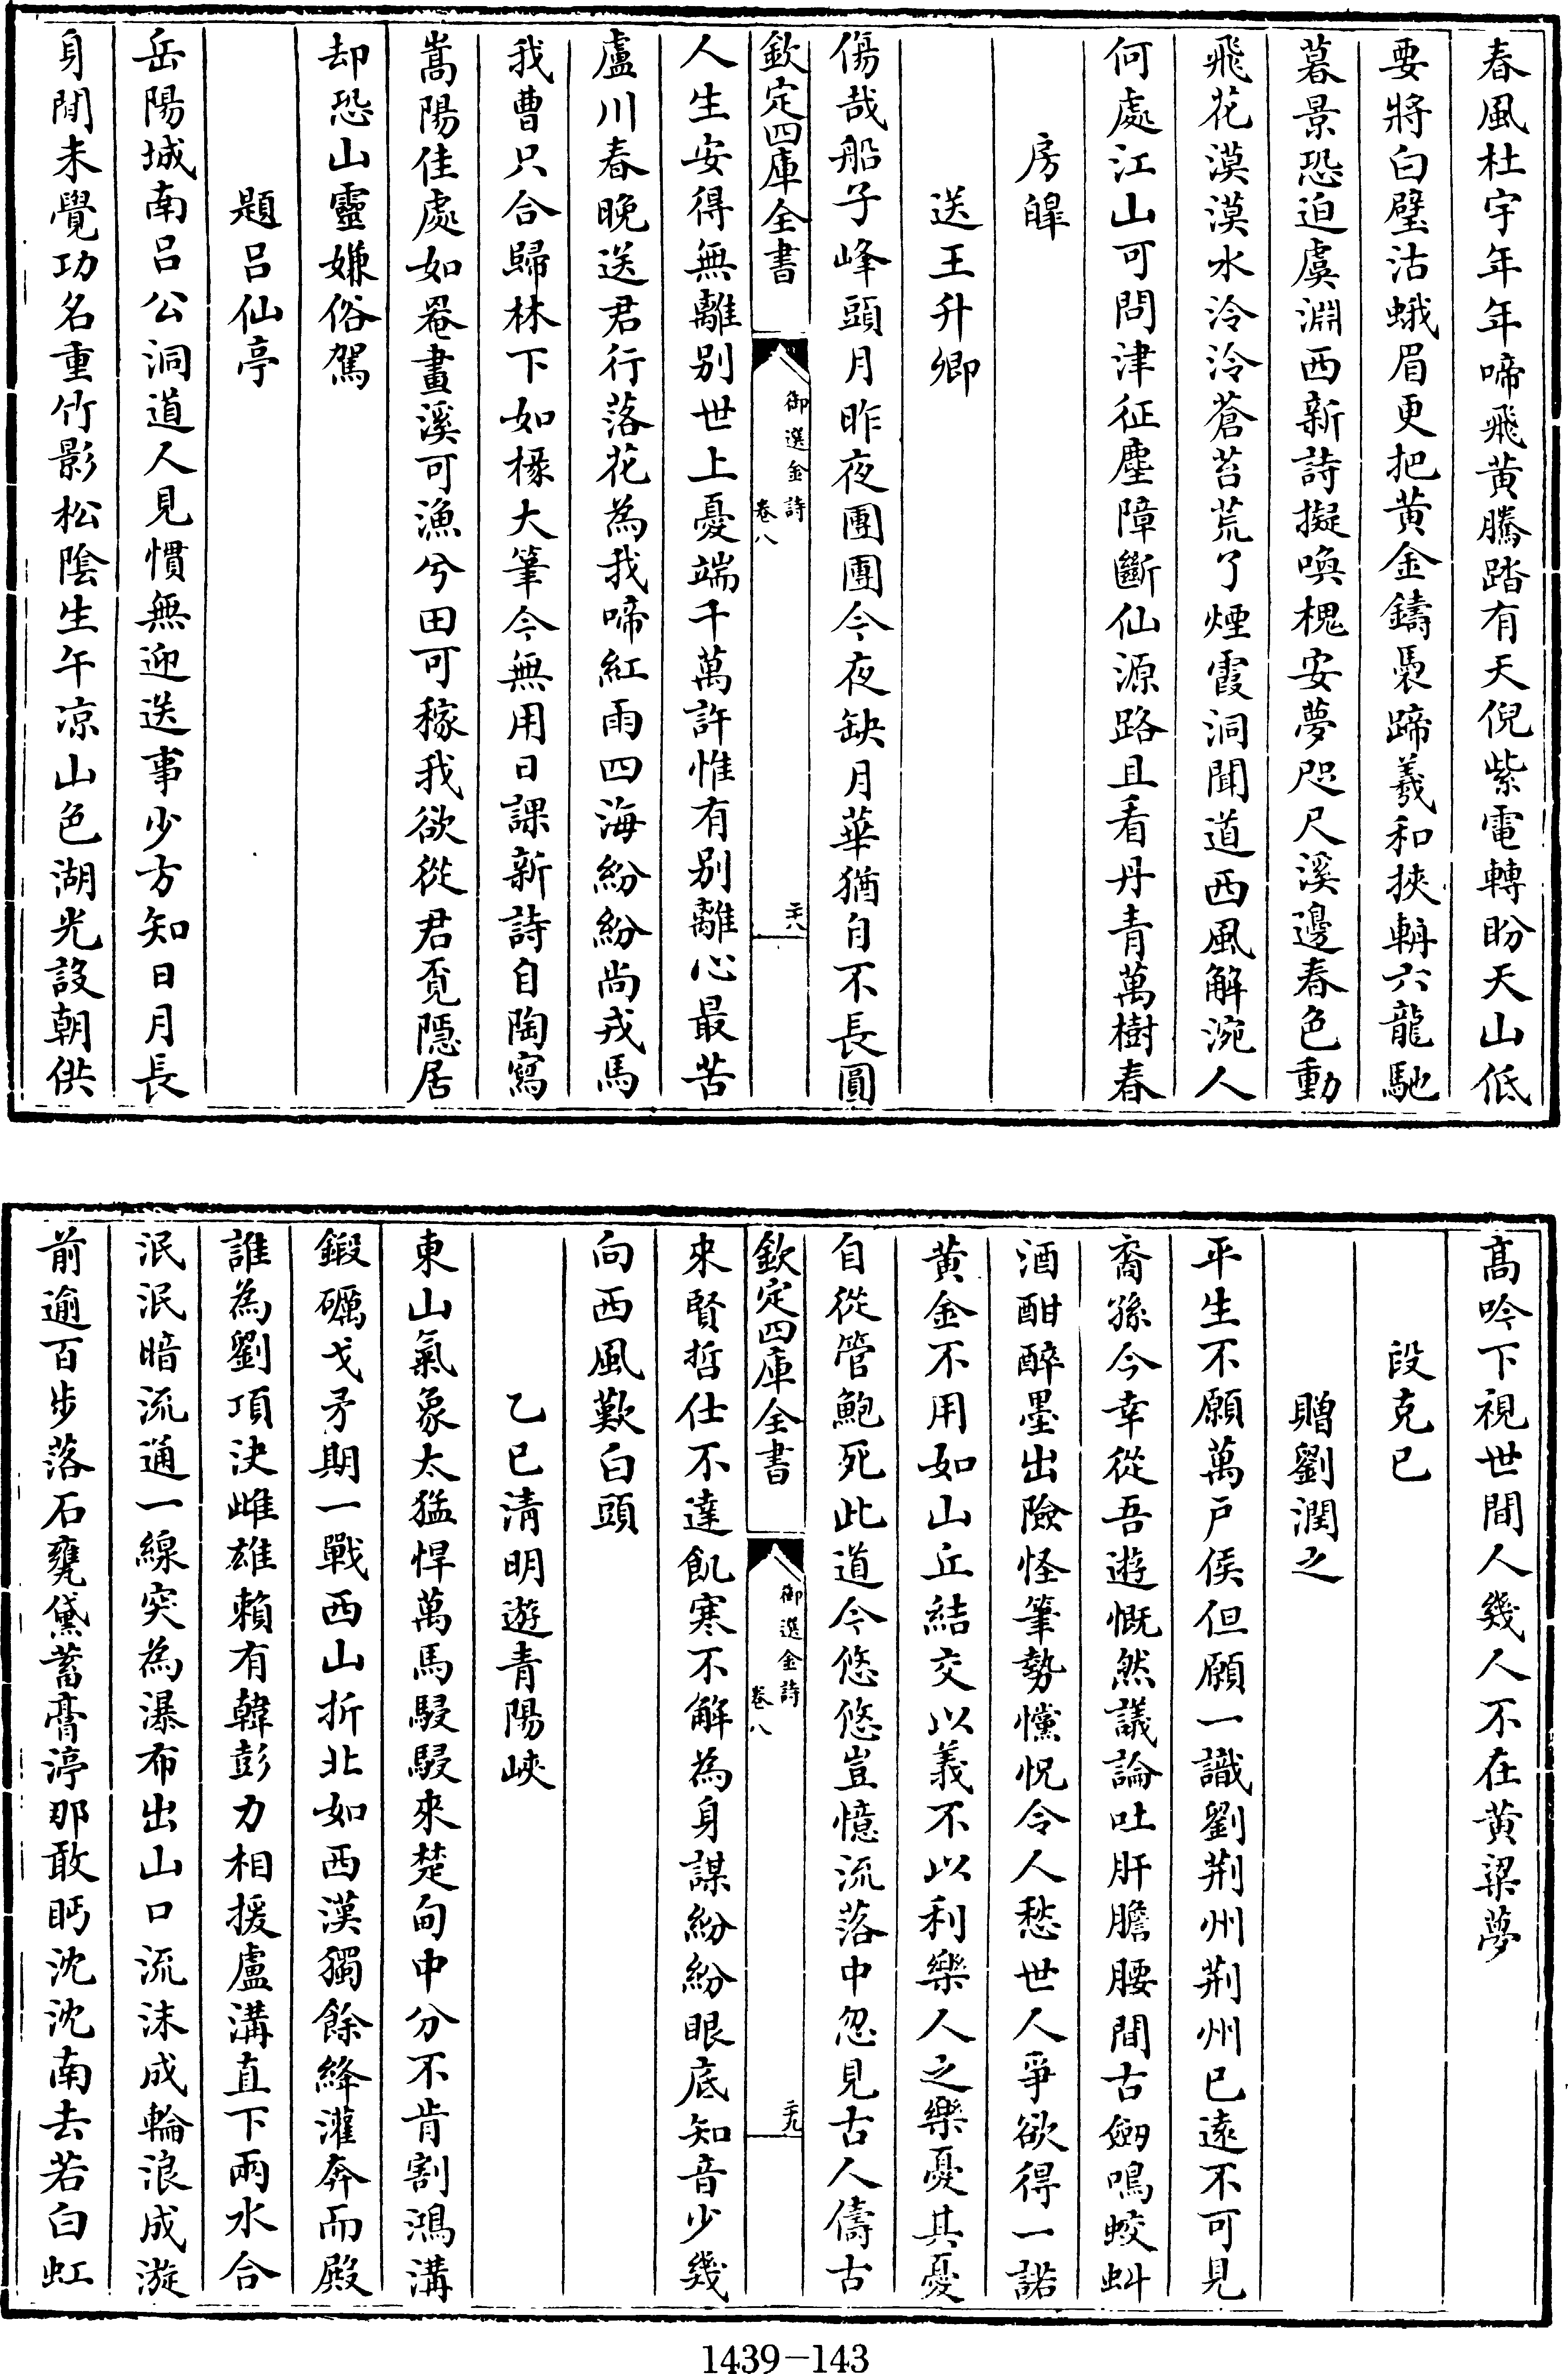 春風杜宇年年啼飛黄騰踏有天倪紫電轉盼天山低
要將白璧沽蛾眉更把黄金鑄褭蹄羲和挾輈六龍馳
暮景恐迫虞淵西新詩擬喚槐安夢咫尺溪邊春色動
飛花漠漠水泠泠蒼苔荒了煙霞洞聞道西風解涴人
何處江山可問津征塵障斷仙源路且看丹青萬樹春
房皥
送王升卿
傷哉船子峰頭月昨夜團團今夜缺月華猶自不長圓
欽定四庫全書
御選金詩
卷八
二十八
人生安得無離别世上憂端千萬許惟有别離心最苦
盧川春晚送君行落花為我啼紅雨四海紛紛尚戎馬
我曹只合歸林下如椽大筆今無用日課新詩自陶寫
嵩陽佳處如罨畫溪可漁兮田可稼我欲從君覔隱居
却恐山靈嫌俗駕
題吕仙亭
岳陽城南吕公洞道人見慣無迎送事少方知日月長
身閒未覺功名重竹影松陰生午凉山色湖光設朝供
高吟下視世間人幾人不在黄粱夢
段克已
贈劉潤之
平生不願萬戸侯但願一識劉荆州荆州已遠不可見
裔孫今幸從吾遊慨然議論吐肝膽腰間古劒鳴蛟虯
酒酣醉墨出險怪筆勢戃怳令人愁世人爭欲得一諾
黄金不用如山丘結交以義不以利樂人之樂憂其憂
自從管鮑死此道今悠悠豈憶流落中忽見古人儔古
欽定四庫全書
御選金詩
卷八
二十九
來賢哲仕不達飢寒不解為身謀紛紛眼底知音少幾
向西風歎白頭
乙已清明遊青陽峽
東山氣象太猛悍萬馬駸駸來楚甸中分不肯割鴻溝
鍛礪戈矛期一戰西山折北如西漢獨餘絳灌奔而殿
誰為劉項決雌雄賴有韓彭力相援盧溝直下兩水合
泯泯暗流通一線突為瀑布出山口流沫成輪浪成漩
前逾百步落石甕黛蓄膏渟那敢眄沈沈南去若白虹
1439-143